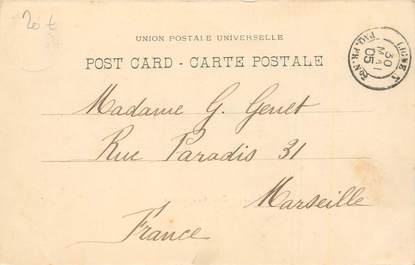 20 €
UNION POSTALE UNIVERSELLE
POST CARD - CARTE POSTALE
LIGNE T
30
MAI
05
PAQ. FR. Nº
Madame G. Genet
Rue Paradis 31
Marseille
France